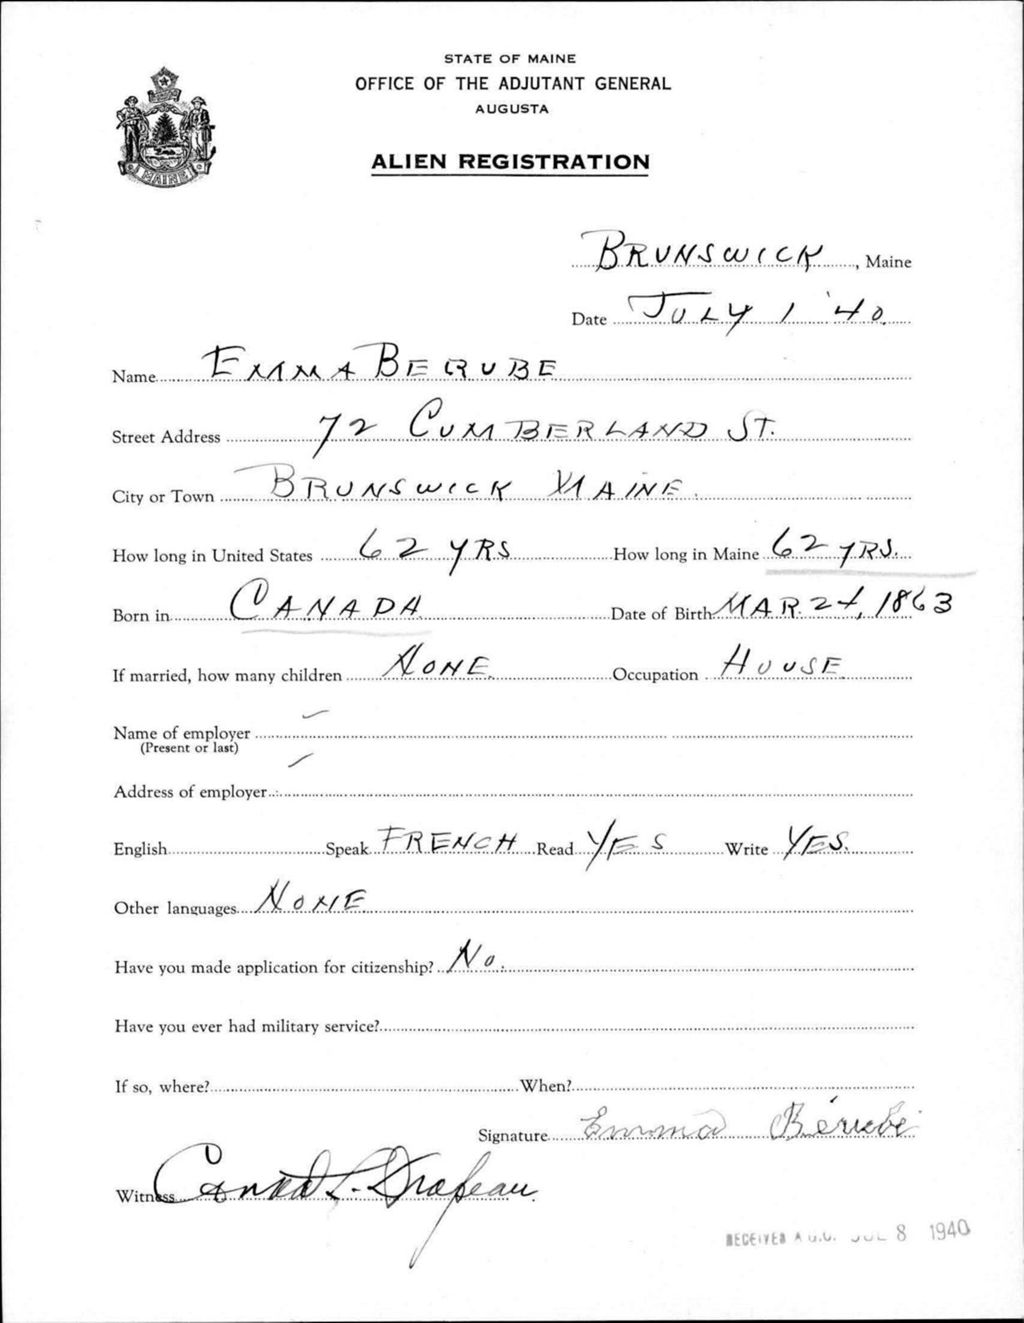 STATE OF MAINE
OFFICE OF THE ADJUTANT GENERAL
AUGUSTA
ALIEN REGISTRATION
MAINE
BRUNSWICK, Maine
Date JULY 1 '40.
Name EMMA BERUBE
Street Address 72 CUMBERLAND ST.
City or Town BRUNSWICK MAINE.
How long in United States 62 YRS How long in Maine 62 YRS.
Born in CANADA Date of Birth MAR. 24, 1863
If married, how many children NONE. Occupation HOUSE.
Name of employer
(Present or last)
Address of employer
English Speak FRENCH Read YES Write YES.
Other languages NONE
Have you made application for citizenship? No.
Have you ever had military service?
If so, where? When?
Signature Emma Bérubé
Witness Conrad L. Drapeau.
RECEIVED A.G.O. JUL 8 1940